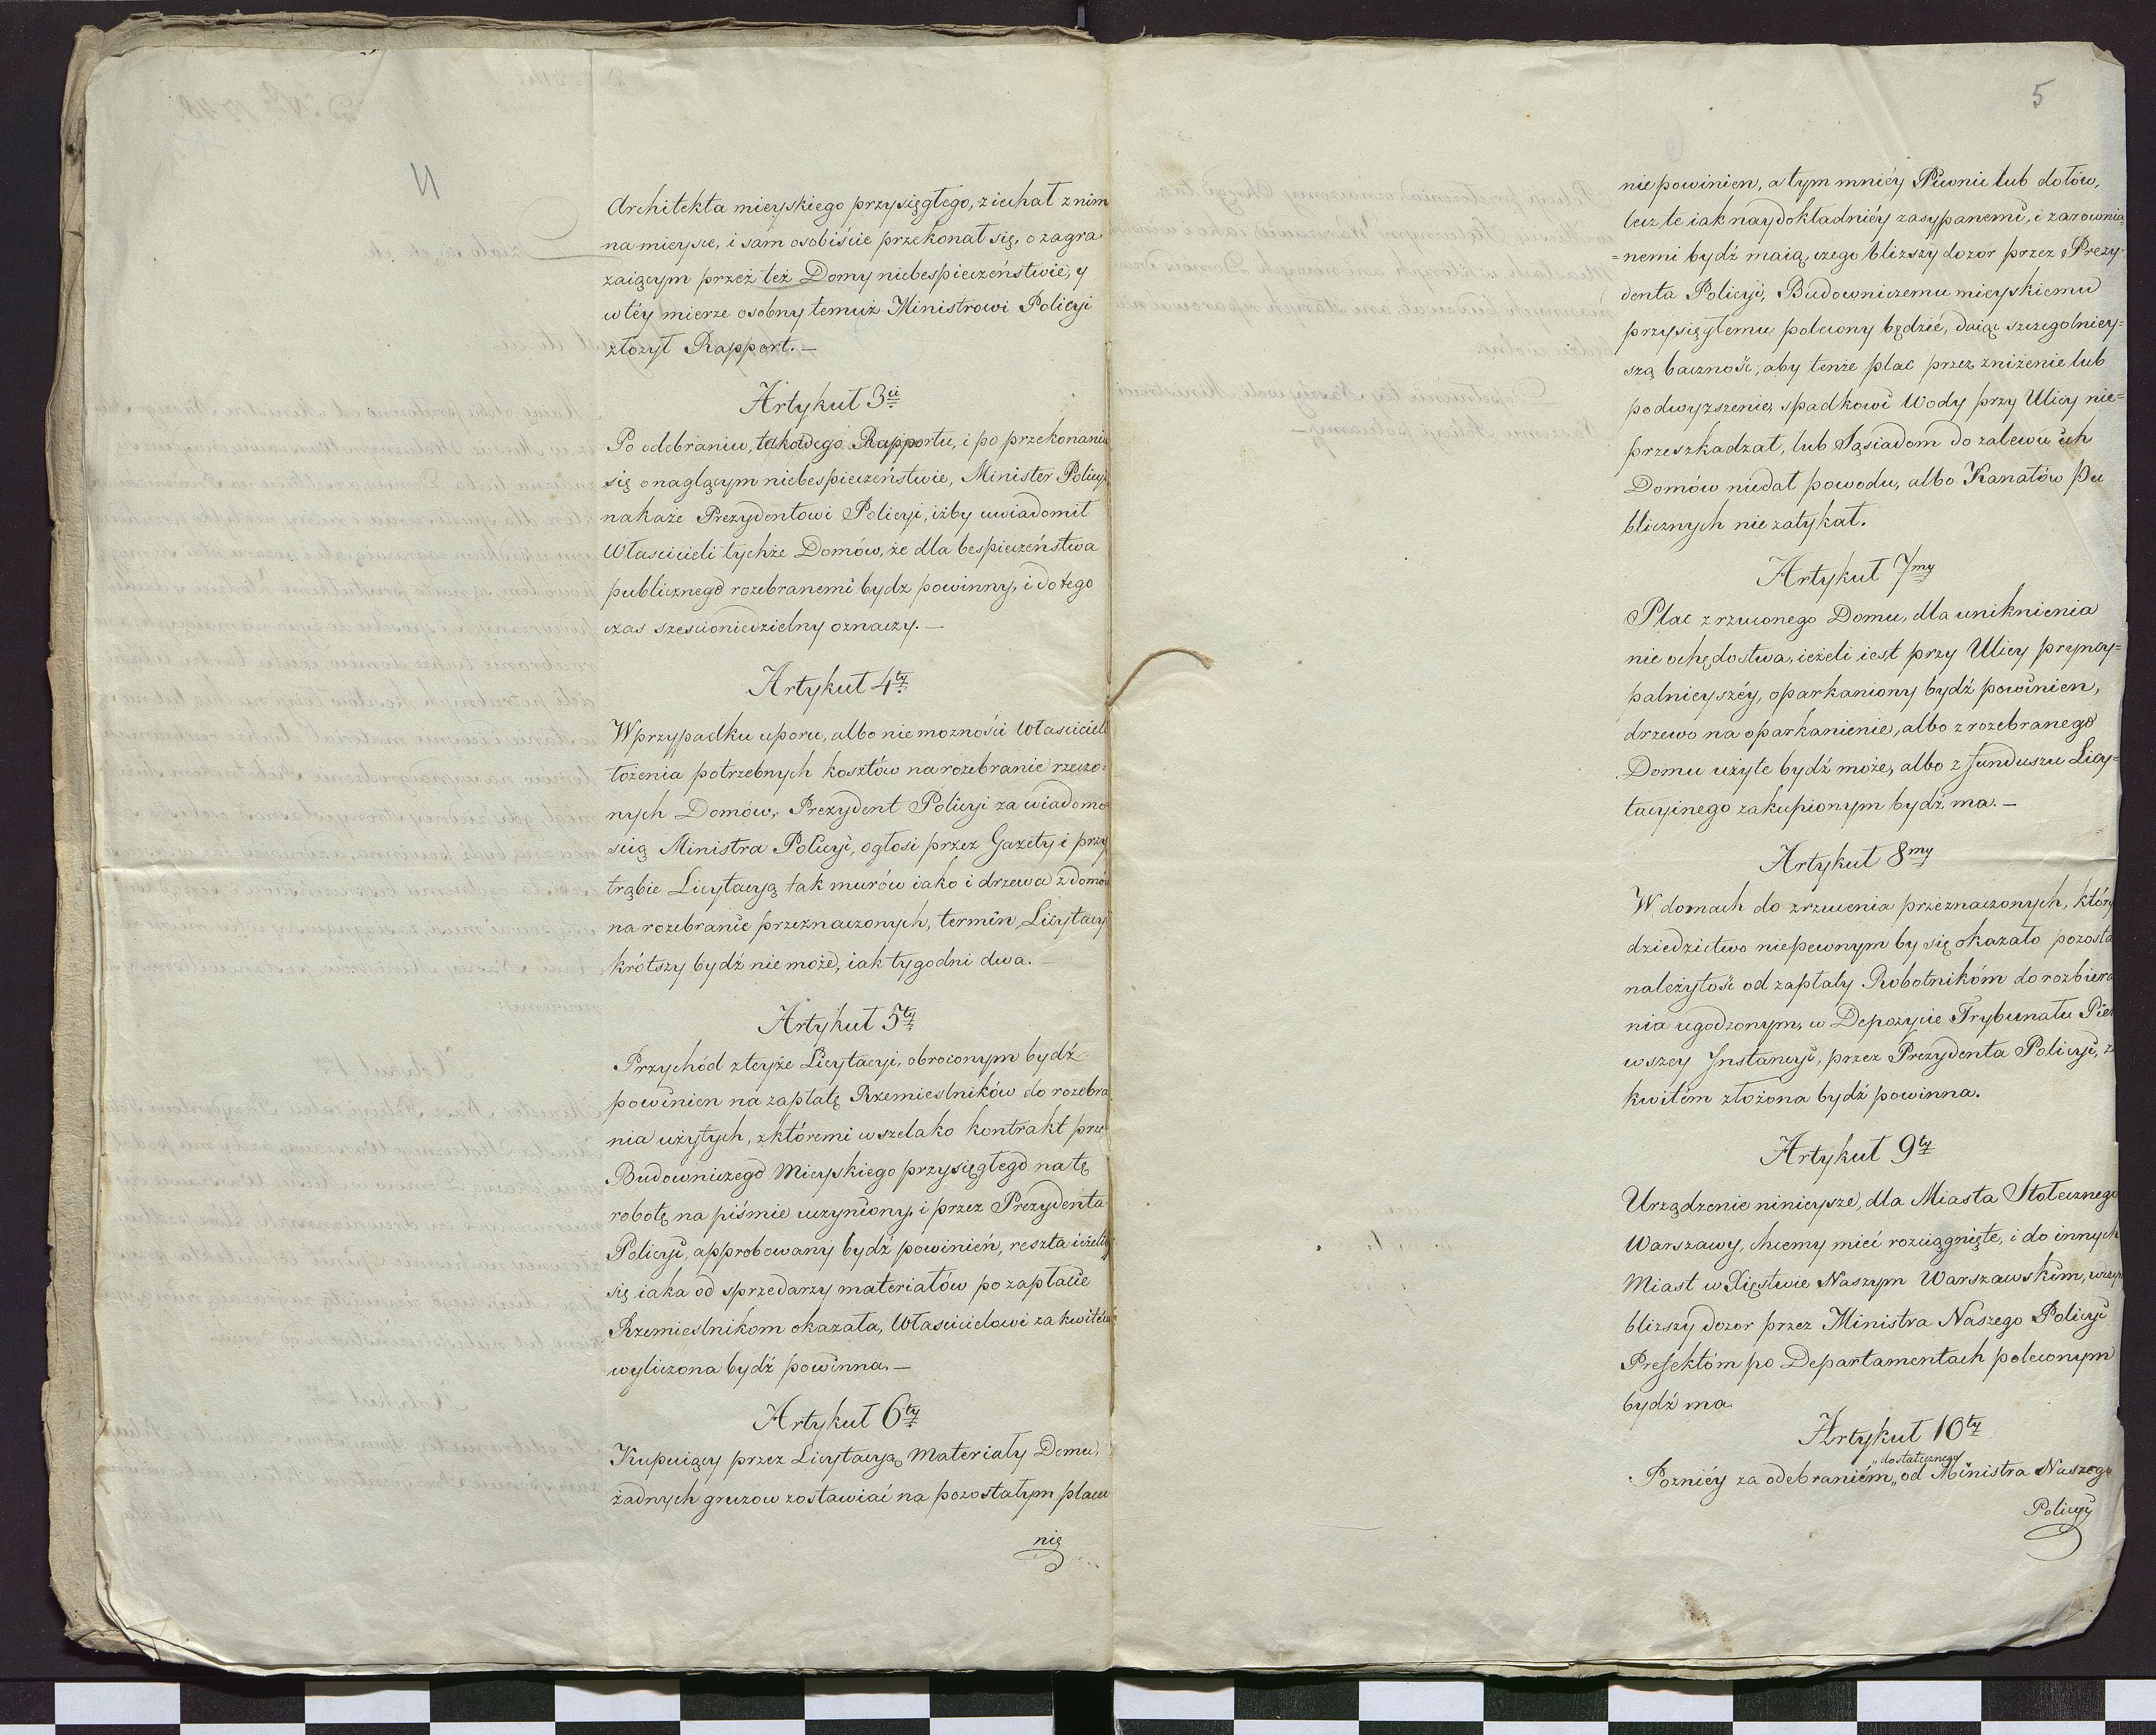 4
Architekta mieyskiego przysięgłego, ziechał z nim
na mieysce, i sam osobiście przekonał się, o zagra-
żaiącym przez też Domy niebespieczeństwie, y
w téy mierze osobny temuż Ministrowi Policyi
złożył Rapport.—
Artykuł 3ci
Po odebraniu, takowego Rapportu, i po przekonaniu
się o naglącym niebespieczeństwie, Minister Policyi
nakaże Prezydentowi Policyi, iżby uwiadomił
Właścicieli tychże Domów, że dla bespieczeństwa
publicznego rozebranemi bydz powinny, i do tego
czas sześcioniedzielny oznaczy.—
Artykuł 4ty
W przypadku uporu, albo niemożności Właściciela
łożenia potrzebnych kosztów na rozebranie rzeczo-
nych Domów, Prezydent Policyi za wiadomo
ścią Ministra Policyi, ogłosi przez Gazety i przy
trąbie Licytacyą tak murów iako i drzewa z domów
na rozebranie przeznaczonych, termin Licytacyi
krótszy bydź nie może, iak tygodni dwa.—
Artykuł 5ty
Przychód z teyże Licytacyi, obroconym bydź
powinien na zapłatę Rzemieslników do rozebra
nia użytych, z któremi wszelako kontrakt prze
Budowniczego Mieyskiego przysięgłego na tę
robotę na piśmie uczyniony, i przez Prezydenta
Policyi, approbowany bydź powinień, reszta ieżeliby
się iaka od sprzedarzy materiałów po zapłacie
Rzemieslnikom okazała, Właścicielowi za kwitem
wyliczona bydź powinna.—
Artykuł 6ty
Kupuiący przez Licytacyą Materiały Domu,
żadnych gruzow zostawiać na pozostałym placu
nie
5
nie powinien, a tym mniéy Piwnic lub dołów,
lecz te iak naydokładniéy zasypanemi, i zarownia-
=nemi bydź maią, czego blizszy dozor przez Prezy-
denta Policyi, Budowniczemu mieyskiemu
przysięgłemu polecony będzie, daiąc szczegolniey=
szą baczność, aby tenże plac przez zniżenie lub
podwyzszenie, spadkowi Wody przy Ulicy nie=
przeszkadzał, lub Sąsiadom do zalewu ich
Domów niedał powodu, albo Kanałów Pu
blicznych nie zatykał.
Artykuł 7my
Plac z rzuconego Domu, dla uniknienia
nieochędostwa, ieżeli iest przy Ulicy pryncy=
palnieyszéy, oparkaniony bydź powinien,
drzewo na oparkanienie, albo z rozebranego
Domu użyte bydź może, albo z funduszu Licy=
tacyinego zakupionym bydź ma.—
Artykuł 8my
W domach do zrzucenia przeznaczonych, któryc
dziedzictwo niepewnym by się okazało pozosta
należytość od zapłaty Robotnikóm do rozbiera
nia ugodzonym, w Depozycie Trybunału Pier
wszey Instancyi, przez Prezydenta Policyi, za
kwitém złożona bydź powinna.
Artykuł 9ty
Urządzenie ninieysze, dla Miasta Stołecznego
Warszawy, chcemy mieć rozciągnięte, i do innych
Miast w Xięstwie Naszym Warszawskim, czego
blizszy dozor przez Ministra Naszego Policyi
Prefektóm po Departamentach poleconym
bydź ma.
Artykuł 10ty
„dostatecznego
Pozniéy za odebraniém „ od Ministra Naszego
Policyi